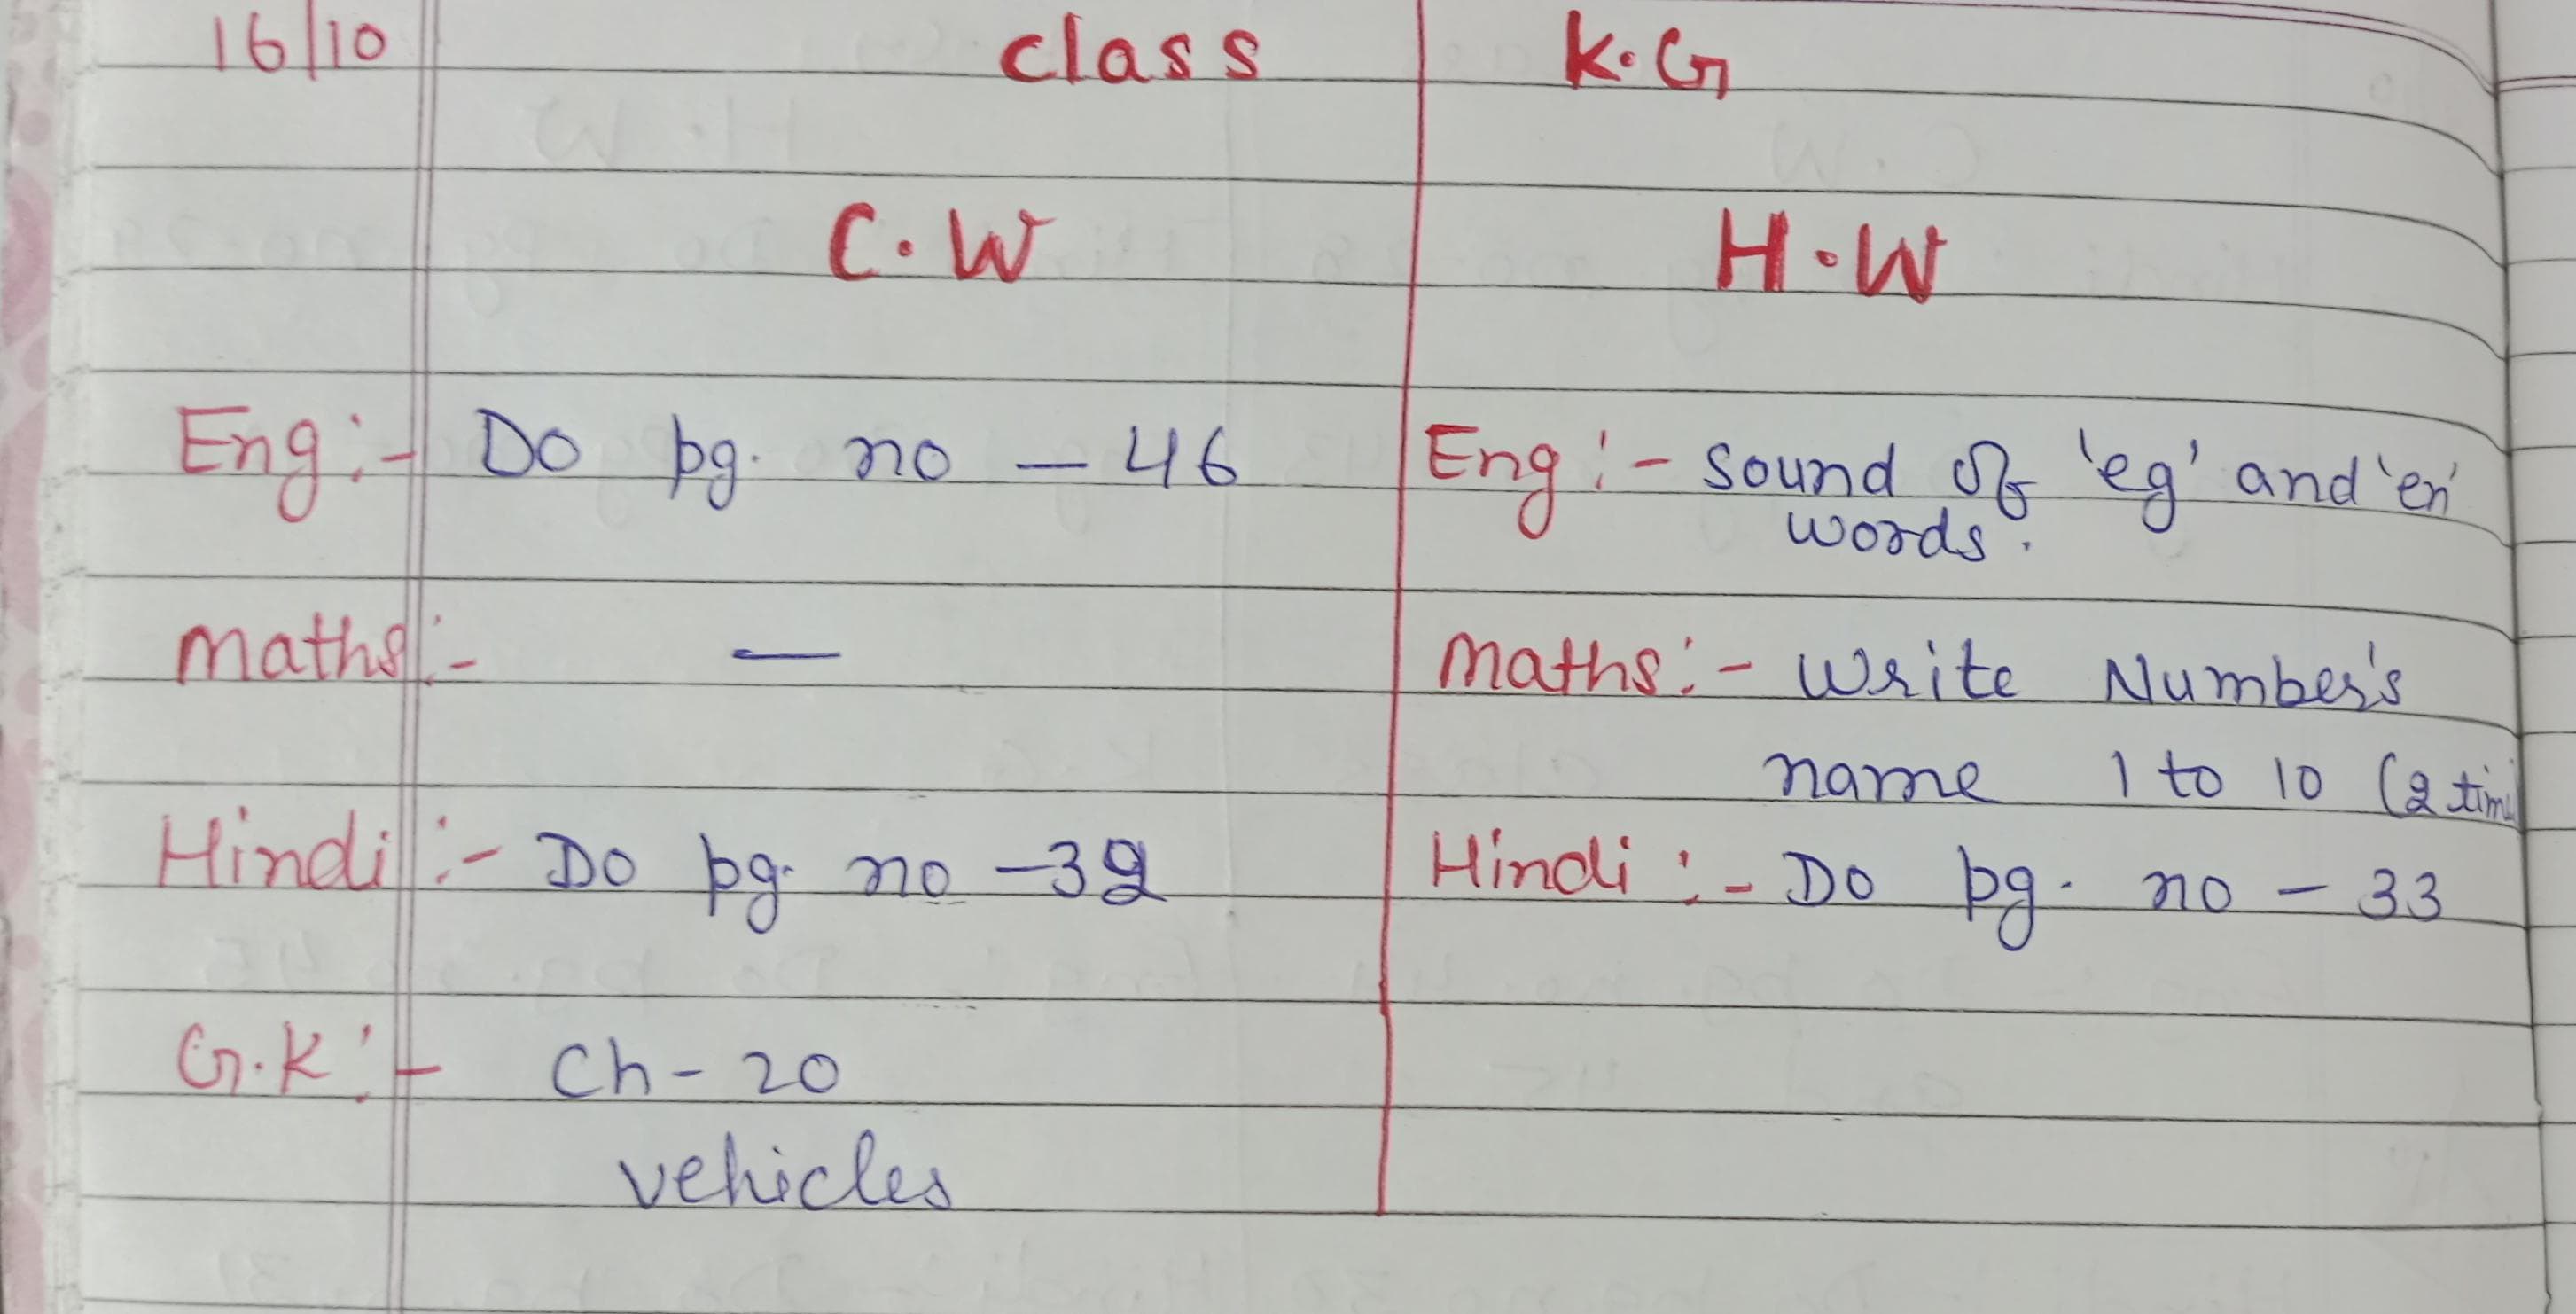 16/10 class K.G
C.W H.W
Eng:- Do pg. no - 46
Eng:- sound of 'eg' and 'en'
words.
Maths:- —
Maths:- Write Number's
name 1 to 10 (2 tim
Hindi:- Do pg. no - 32
Hindi:- Do pg. no - 33
G.K:- Ch - 20
vehicles